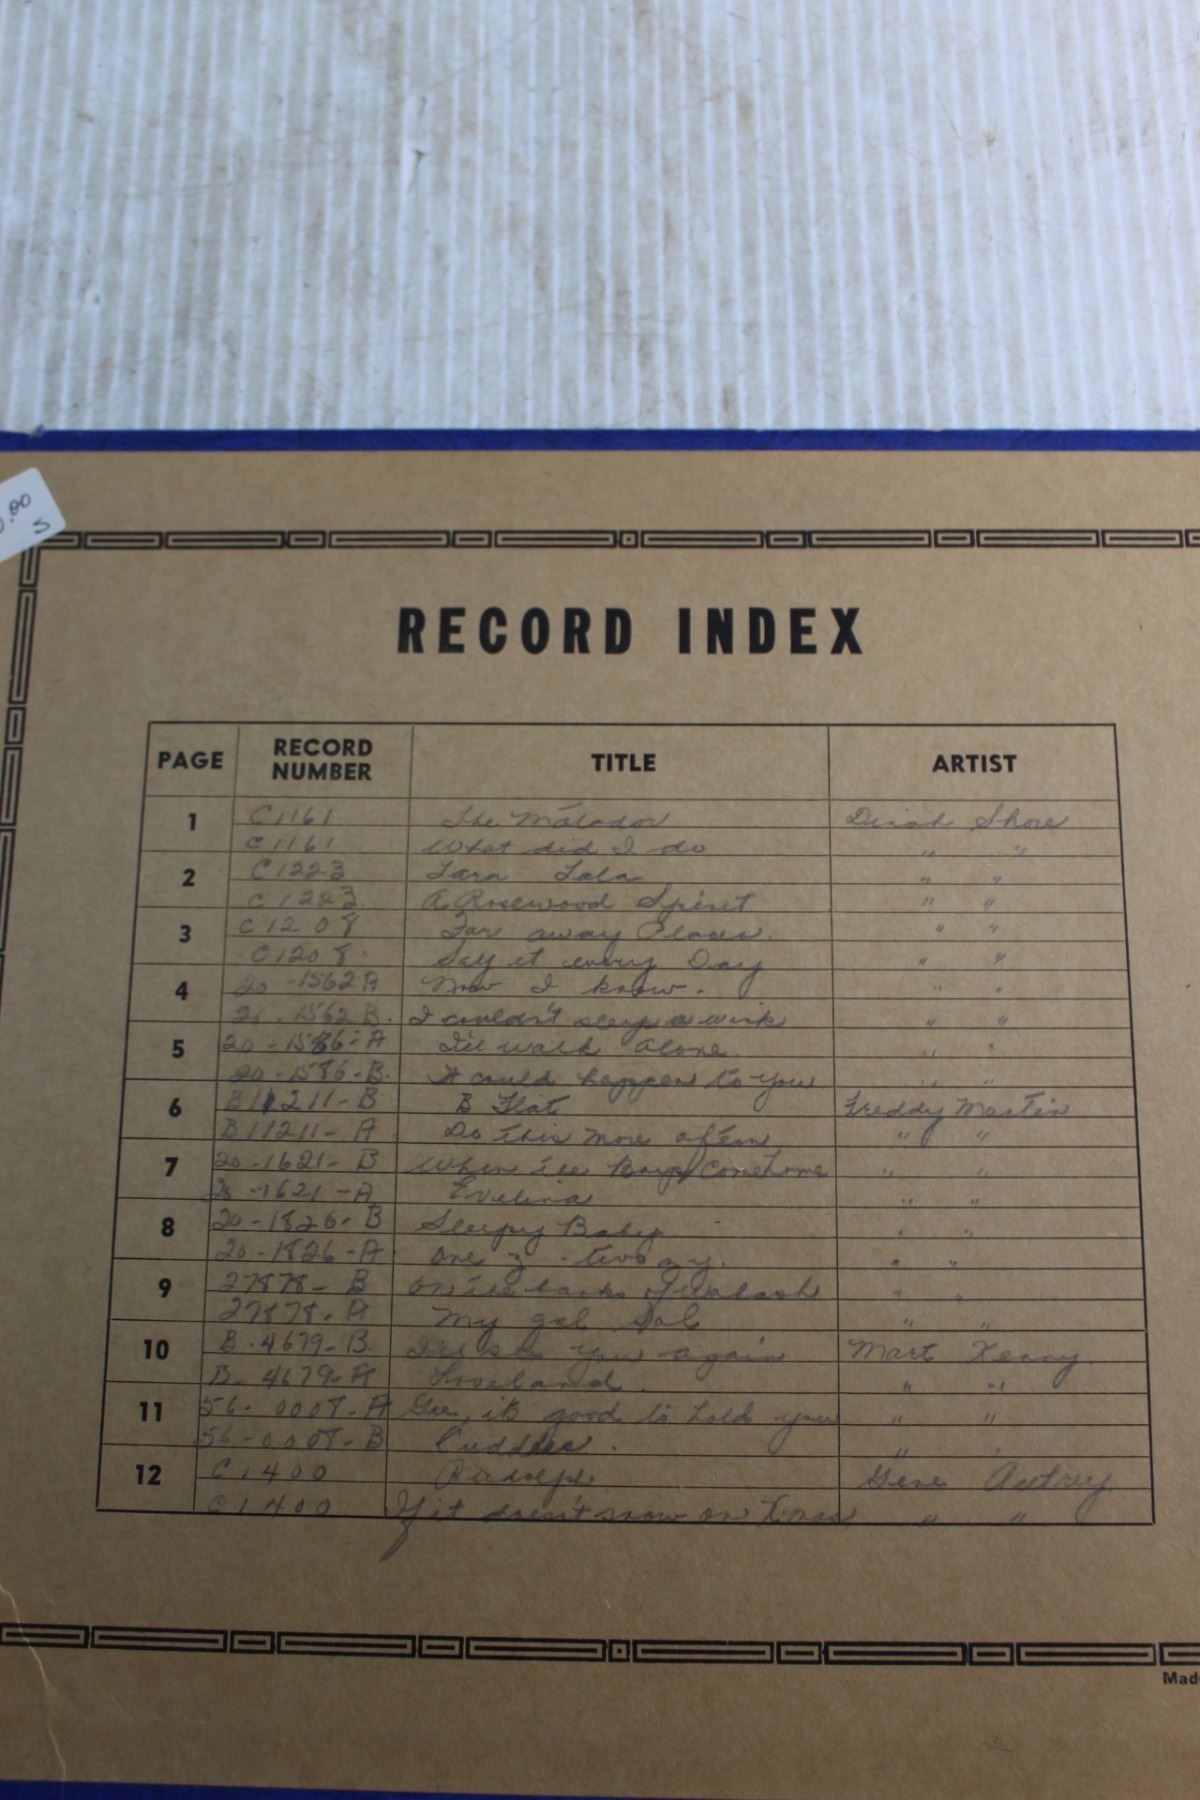 .00
S
RECORD INDEX
PAGE RECORD NUMBER TITLE ARTIST
1 C1161 The Matador Dinah Shore
C1161 What did I do " "
2 C1223 Lara Lala " "
C1223 A Rosewood Spinet " "
3 C1208 Far away Places " "
C1208 Say it every Day " "
4 20-1562A Now I know. " "
20-1562B. I couldn't sleep a wink " "
5 20-1586-A I'll walk alone " "
20-1586-B. It could happen to you " "
6 B11211-B B Flat Freddy Martin
B11211-A Do this more often " "
7 20-1621-B When the Boys Come home " "
20-1621-A Evelina " "
8 20-1826-B Sleepy Baby " "
20-1826-A one-zy-two zy. " "
9 27878-B On the banks of Wabash " "
27878-A My gal Sal " "
10 B-4679-B. I'll see you again Mart Kenny
B-4679-A Loveland. " "
11 56-0008-A Gee, it's good to hold you " "
56-0008-B Cuddles. " "
12 C1400 Rudolph Gene Autrey
C1400 If it doesn't snow on Xmas " "